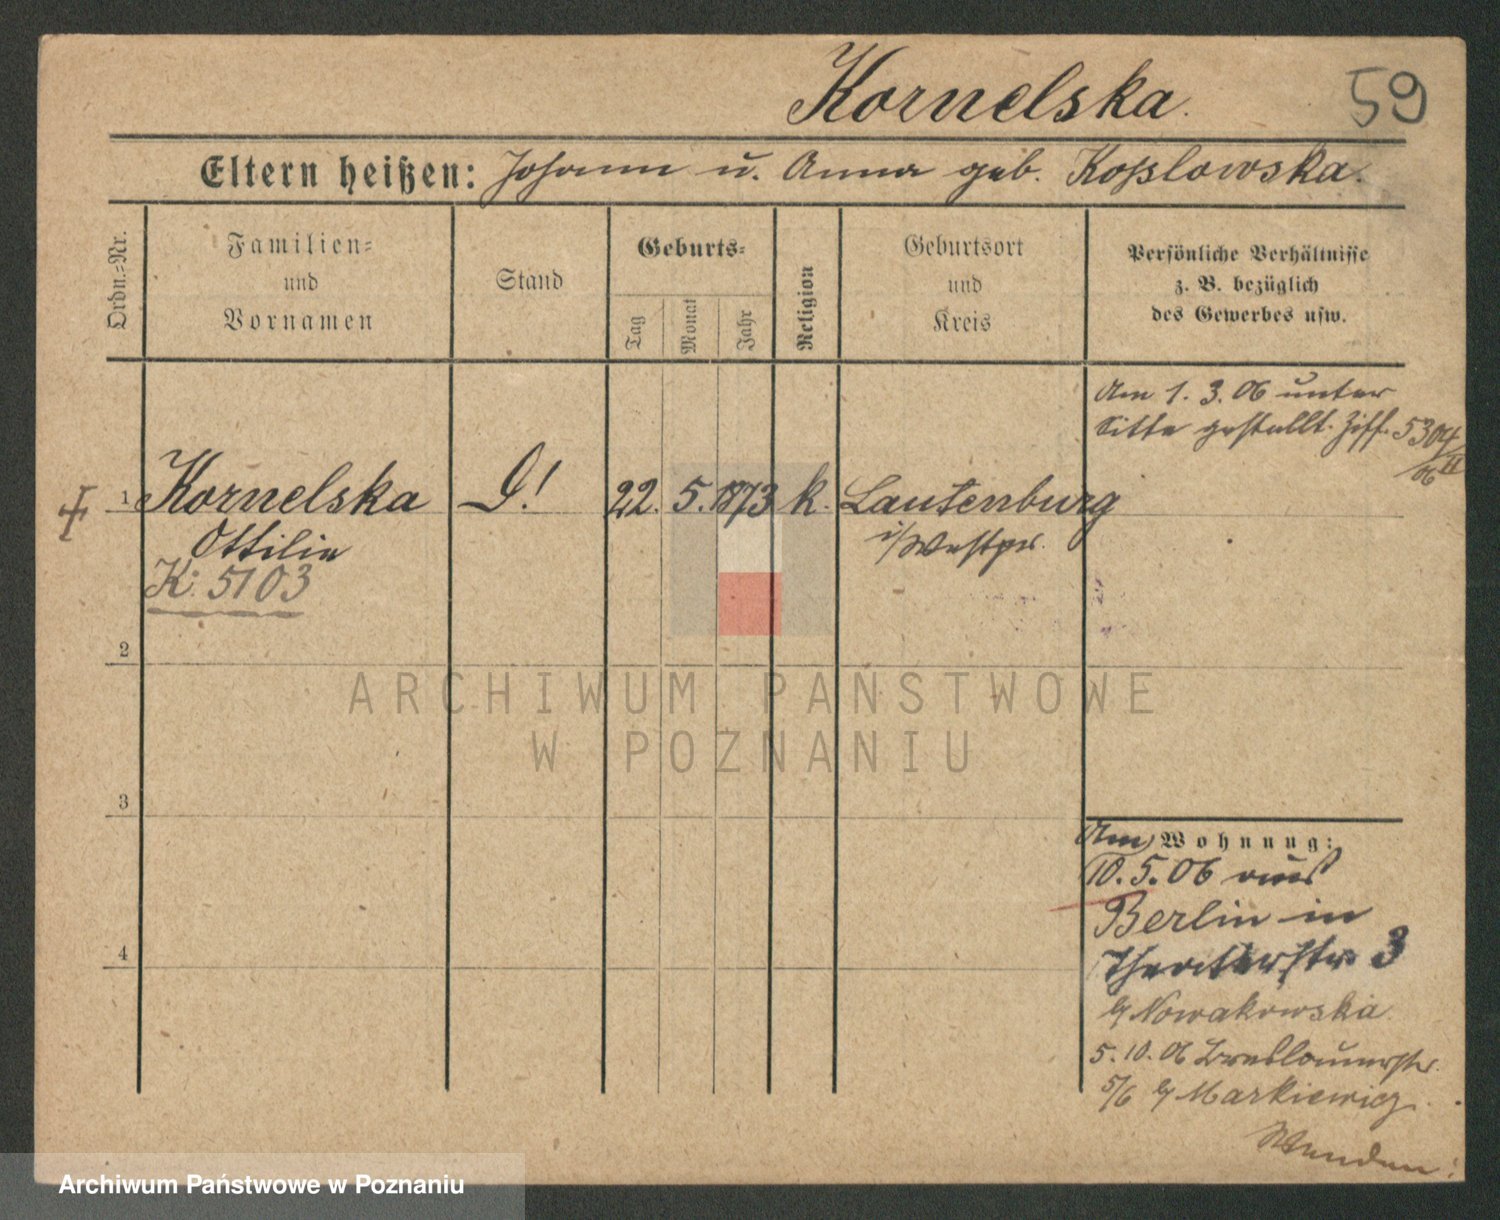 Kornelska.
59
Eltern heißen: Johann u. Anna geb. Koßlowska.
Ordn.=Nr.
Familien=
und
Vornamen
Stand
Geburts=
Tag
Monat
Jahr
Religion
Geburtsort
und
Kreis
Persönliche Verhältnisse
z. B. bezüglich
des Gewerbes usw.
Am 1. 3. 06 unter
Sitte gestellt. Ziff. 5304/06 II
1 Kornelska D! 22. 5. 1873 k. Lautenburg
Ottilie i/Westpr.
K: 5103
2
3
4
Wohnung:
Am
10. 5. 06 aus
Berlin in
Theaterstr 3
b/ Nowakowska
5. 10. 06 Breslauerstr.
5/6 b/ Markiewicz.
Wenden!
ARCHIWUM PAŃSTWOWE
W POZNANIU
Archiwum Państwowe w Poznaniu